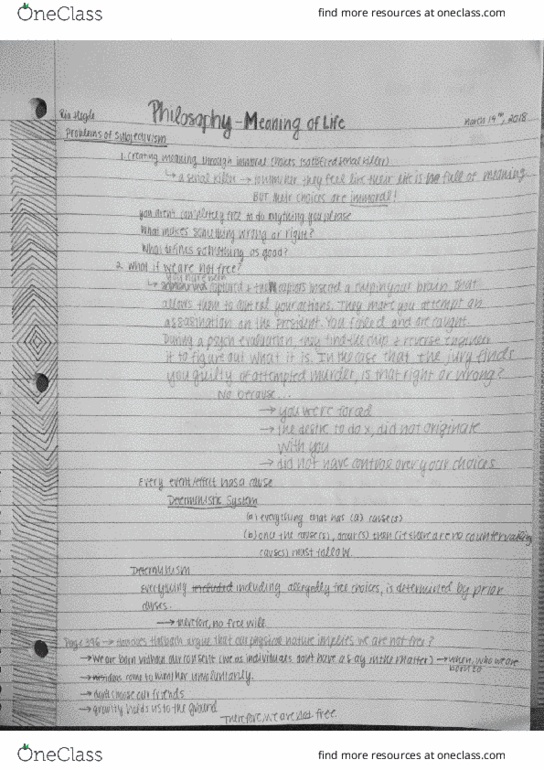 OneClass
find more resources at oneclass.com
Philosophy - Meaning of Life
March 19th, 2018
Problems of Subjectivism
1. Creating meaning through immoral choices (satisfied serial killer)
↳ a serial killer → they feel like their life is full of meaning
BUT their choices are immoral!
you aren't completely free to do anything you please
What makes something wrong or right?
What defines something as good?
2. What if we are not free?
captured & the captors inserted a chip in your brain that
allows them to control your actions. They make you attempt an
assassination on the President. You failed and are caught.
During a psych evaluation, they find the chip & reverse engineer
it to figure out what it is. In the case that the jury finds
you guilty of attempted murder, is that right or wrong?
No because...
→ you were forced
→ the desire to do x, did not originate
with you
→ did not have control over your choices
Every event/effect has a cause
Deterministic System
(a) everything that has (a) cause(s)
(b) once the cause(s), occur(s) than (if there are no countervailing
causes) must follow.
Determinism
everything included including allegedly free choices, is determined by prior
causes.
→ therefore, no free will.
Page 396 → How does argue that our physical nature implies we are not free?
→ We are born without our consent (we as individuals don't have a say in the matter) → when, who we are
born to
→ come to him/her involuntarily.
→ don't choose our friends
→ gravity holds us to the ground
Therefore, we are not free.
OneClass
find more resources at oneclass.com